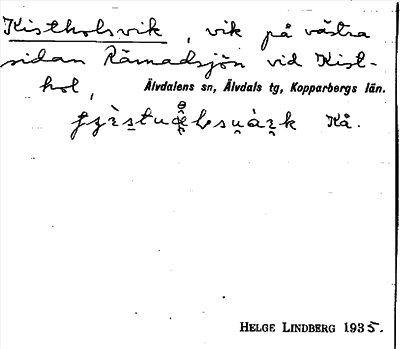 Kistholsvik, vik på västra
sidan Rämadsjön vid Kist-
hol, Älvdalens sn, Älvdals tg, Kopparbergs län.
Kå.
HELGE LINDBERG 1935.